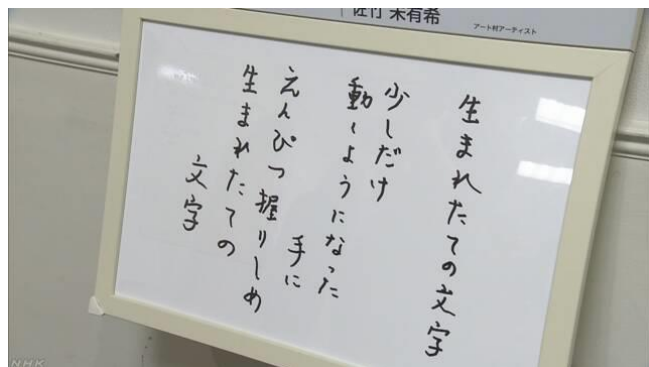 佐竹 未有希
アート村アーティスト
生まれたての文字
少しだけ
動くようになった
手に
えんぴつ握りしめ
生まれたての
文字
NHK